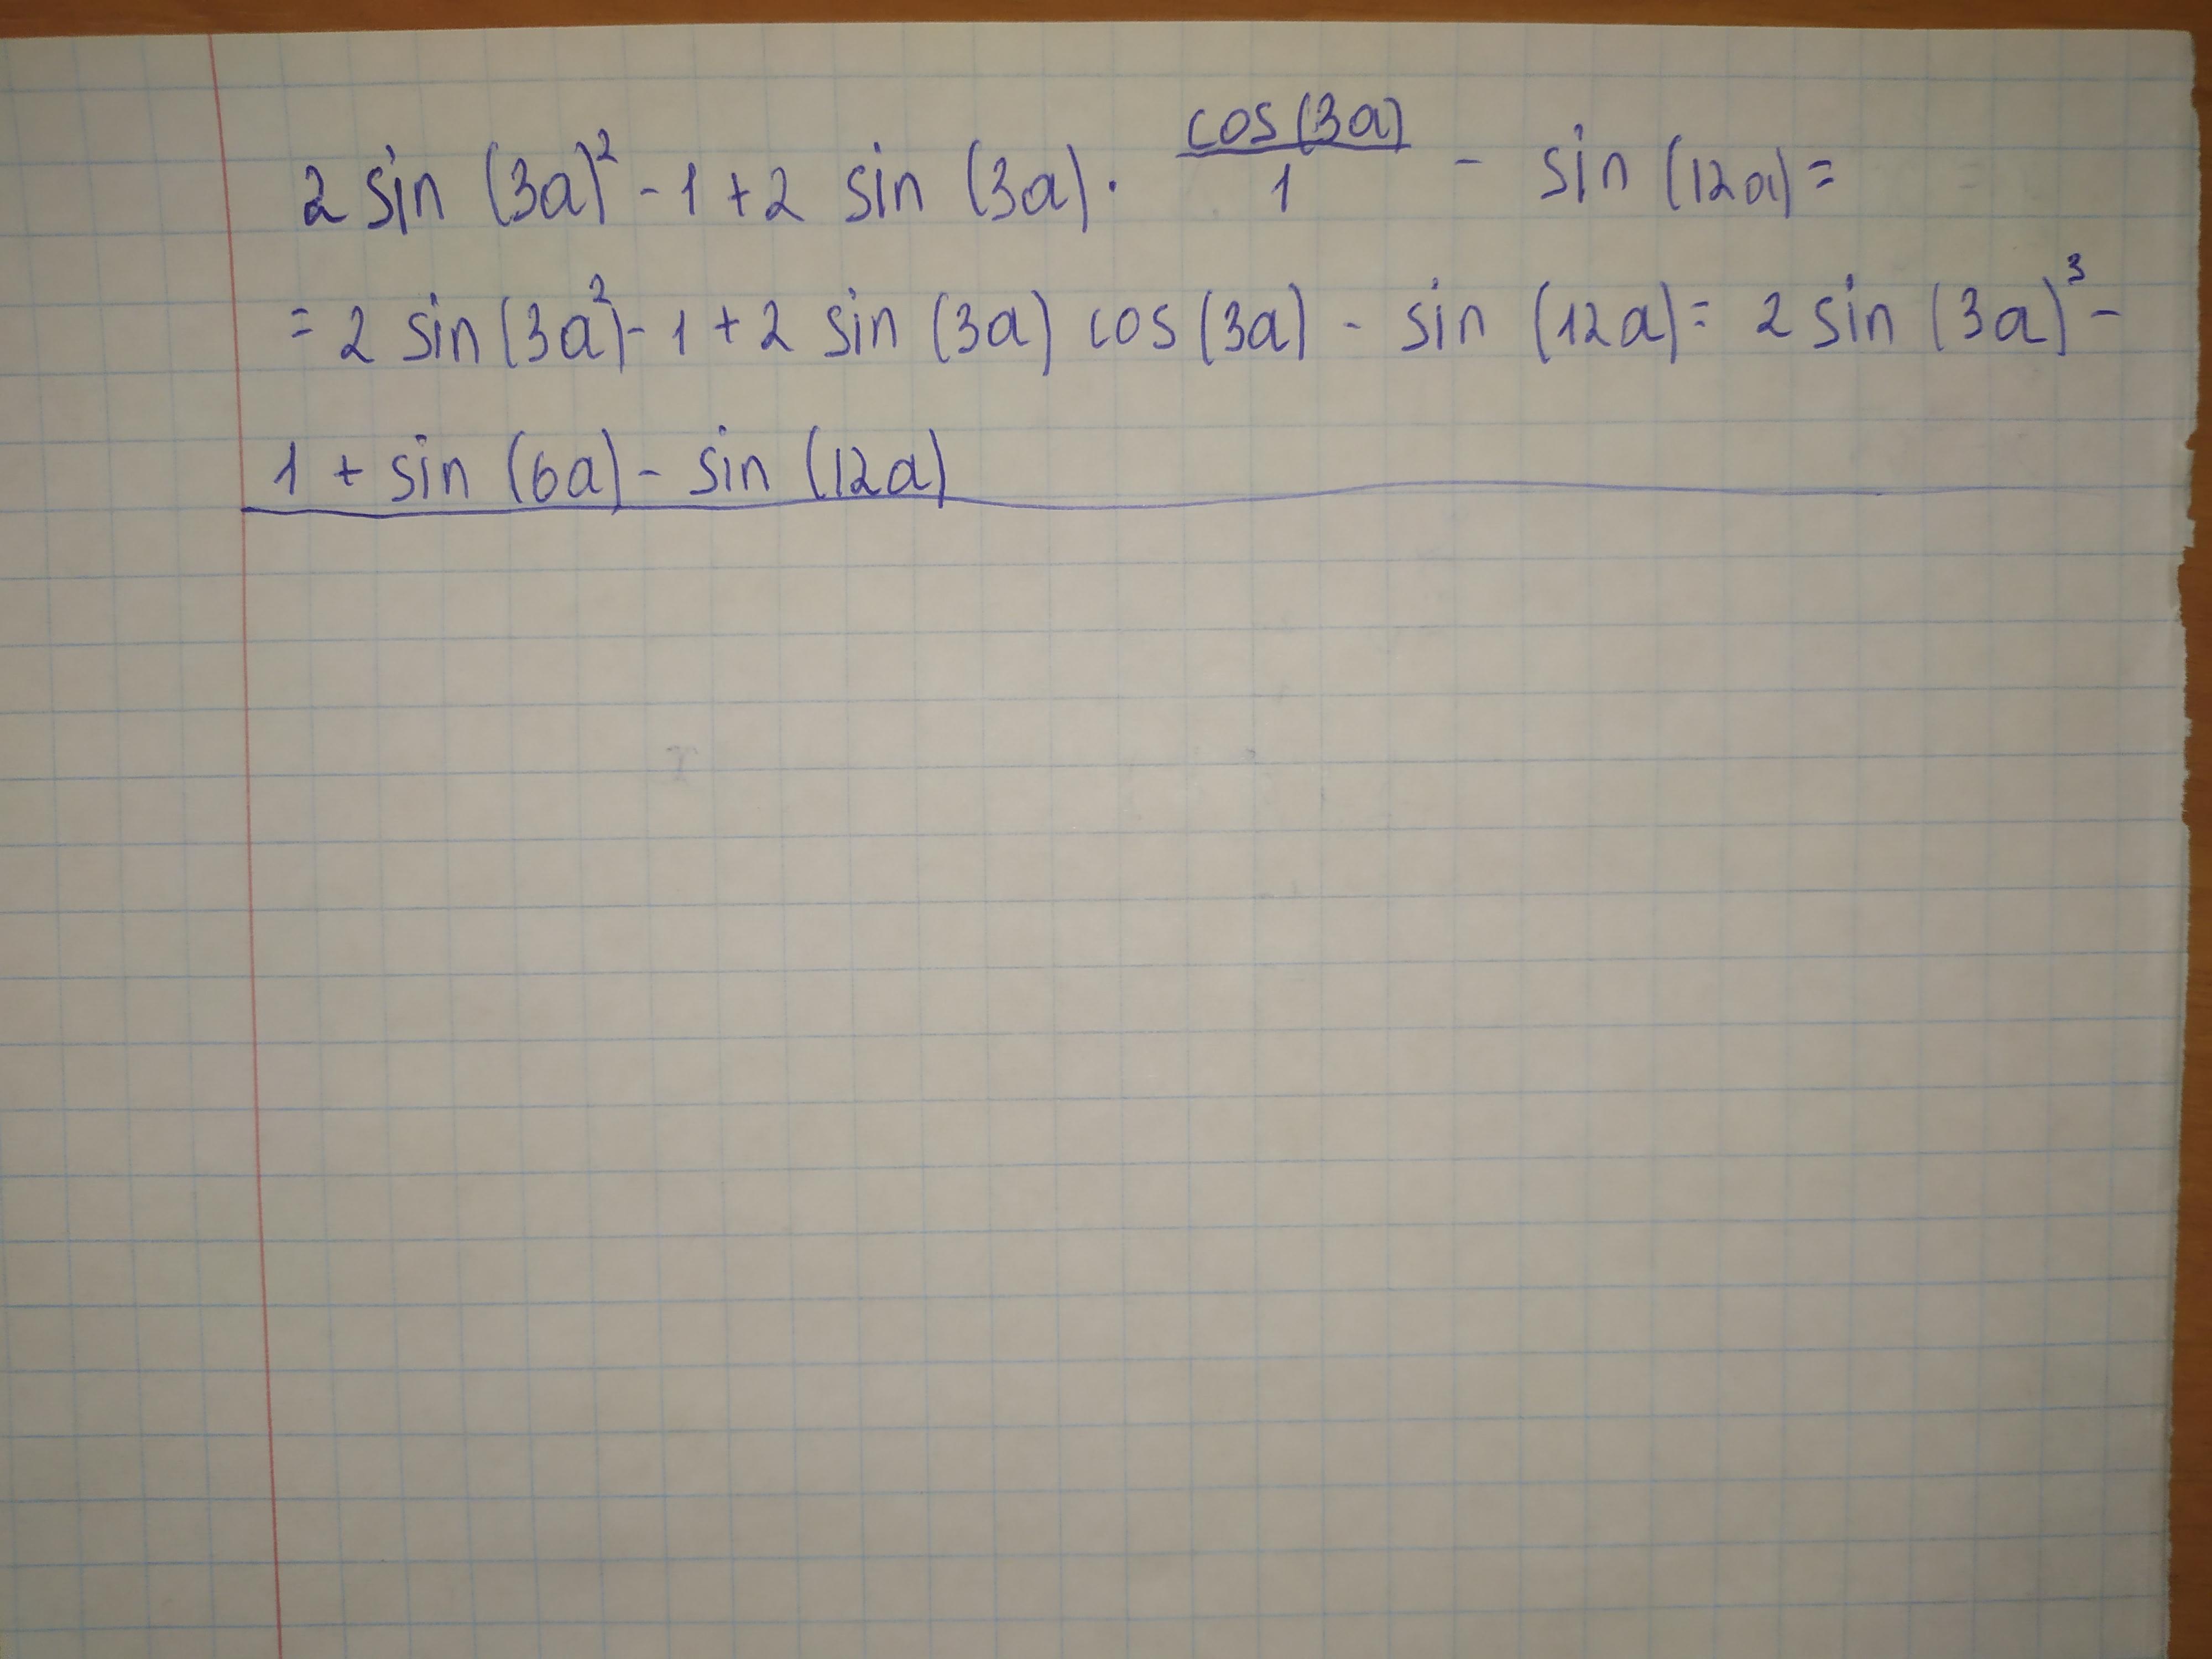 2 sin (3a)² - 1 + 2 sin (3a) · cos (3a)/1 - sin (12a) =
= 2 sin (3a²) - 1 + 2 sin (3a) cos (3a) - sin (12a) = 2 sin (3a)³ -
1 + sin (6a) - sin (12a)